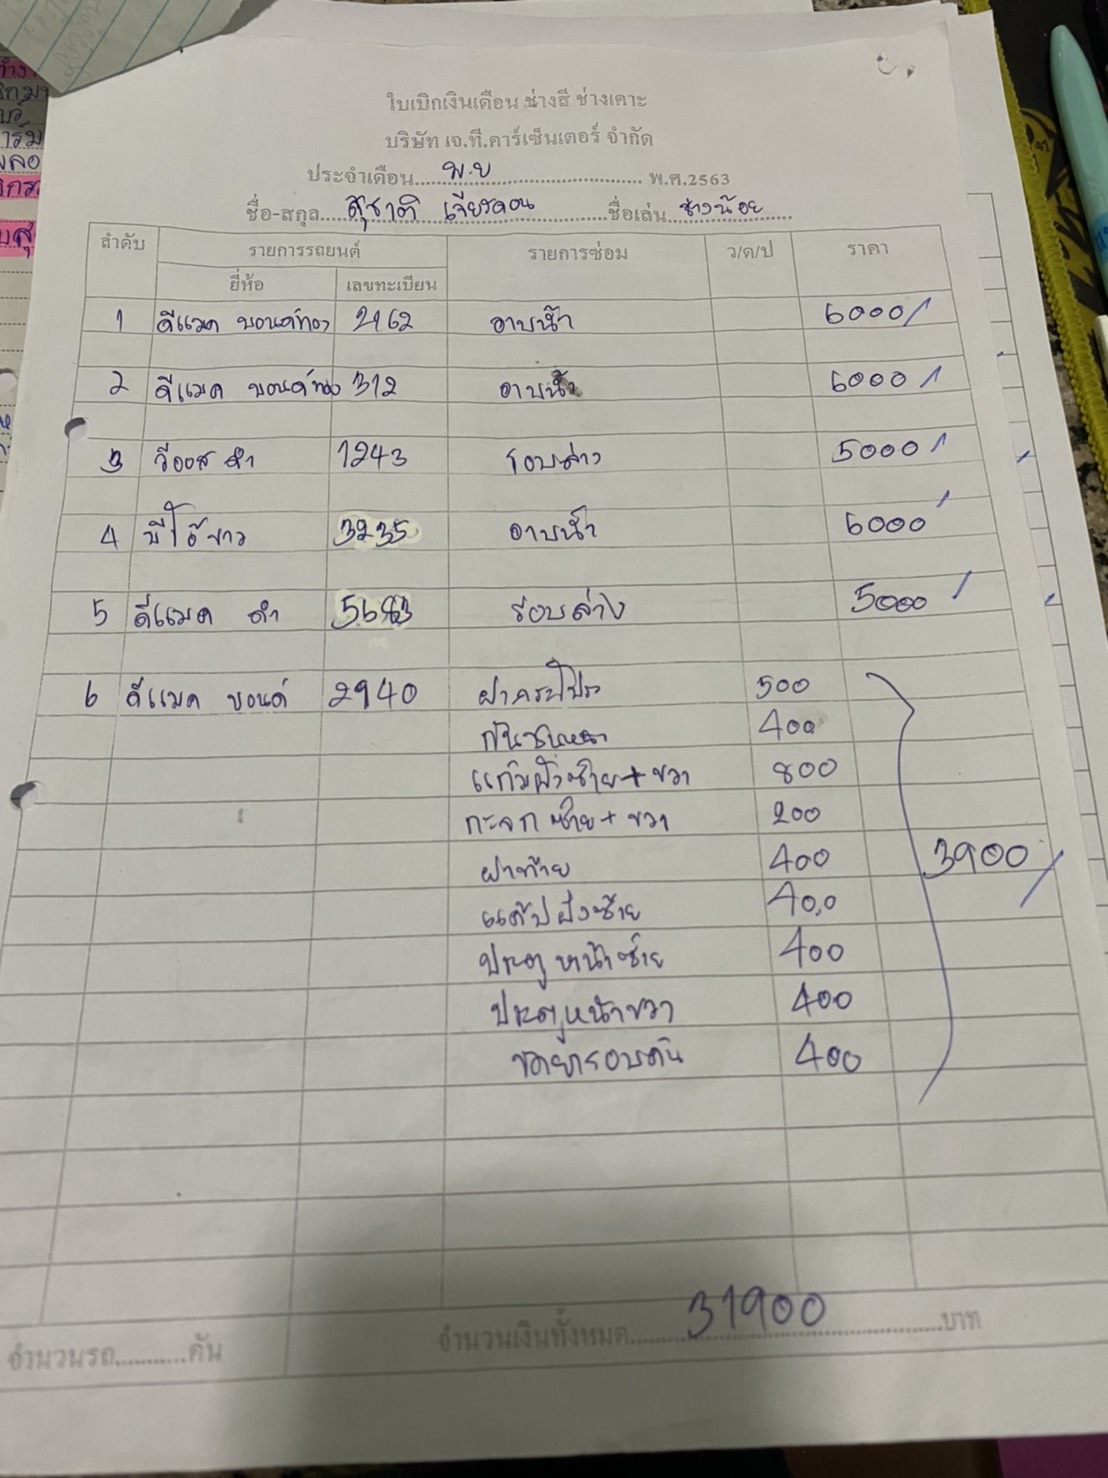 ใบเบิกเงินเดือน ช่างสี ช่างเคาะ
บริษัท เจ.ที.คาร์เซ็นเตอร์ จำกัด
ประจำเดือน.....พ.ย.....พ.ศ.2563
ชื่อ-สกุล...สุชาติ.....ชื่อเล่น...ช่างน้อย...
ลำดับ รายการรถยนต์ รายการซ่อม ว/ด/ป ราคา
ยี่ห้อ เลขทะเบียน
1 ดีแมค บอนด์ทอง 2162 อาบน้ำ 6000/
2 ดีแมค บอนด์ทอง 312 อาบน้ำ 6000/
3 วีออส ดำ 1243 รอบล่าง 5000/
4 ขาว 3235 อาบน้ำ 6000/
5 ดีแมค ดำ 5683 รอบล่าง 5000/
6 ดีแมค บอนด์ 2940 ฝากระโปรง 500
กันชนหน้า 400
แก้มฝั่งซ้าย+ขวา 800
กะจก ซ้าย+ขวา 200
ฝาท้าย 400 3900/
แค๊ปฝั่งซ้าย 400
ประตูหน้าซ้าย 400
ประตูหน้าขวา 400
รอบคัน 400
จำนวนรถ...........คัน จำนวนเงินทั้งหมด.....31900.....บาท